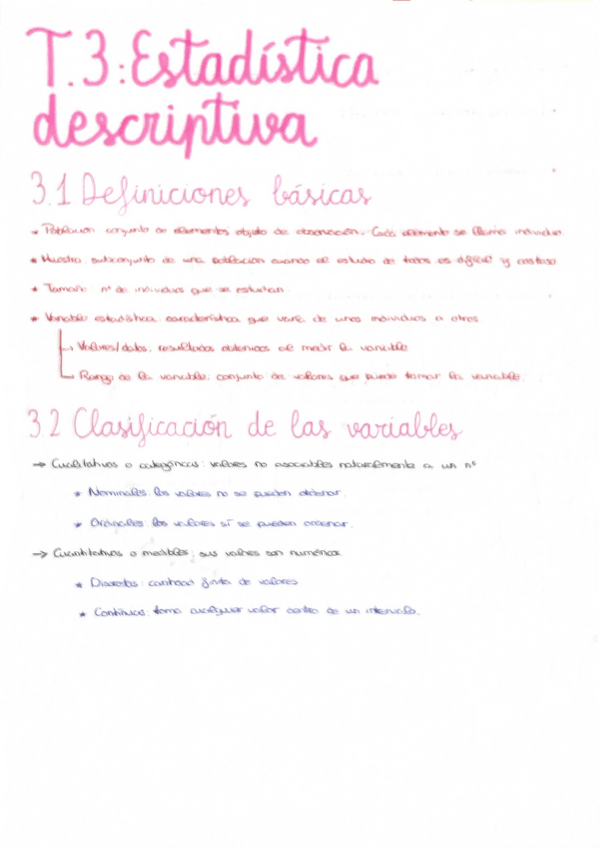 T.3: Estadística
descriptiva
3.1 Definiciones básicas
* Población conjunto de elementos objeto de observación. Cada elemento se llama individuo.
* Muestra: subconjunto de una población cuando el estudio de todos es difícil y costoso
* Tamaño: nº de individuos que se estudian
* Variable estadística: característica que varía de unos individuos a otros
→ Valores/datos: resultados obtenidos al medir la variable
→ Rango de la variable: conjunto de valores que puede tomar la variable.
3.2 Clasificación de las variables
→ Cualitativas o categóricas: valores no asociables naturalmente a un nº
* Nominales: los valores no se pueden ordenar.
* Ordinales: los valores sí se pueden ordenar.
→ Cuantitativas o medibles: sus valores son numéricos
* Discretas: cantidad finita de valores
* Continuas: toma cualquier valor dentro de un intervalo.